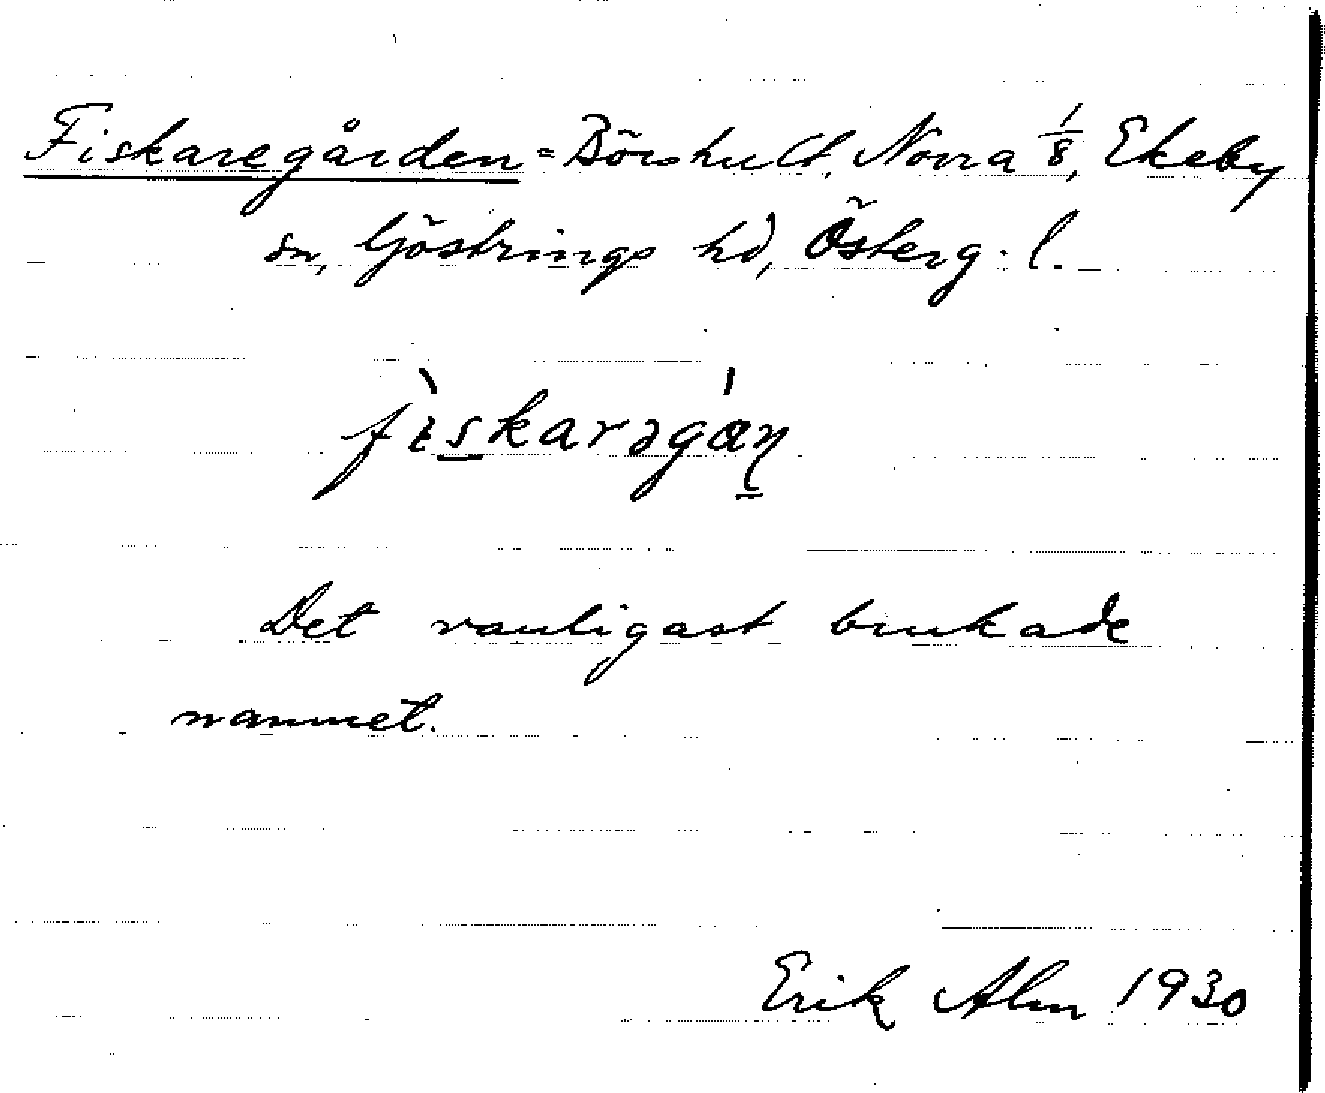 Fiskaregården = Börshult, Norra 1/8, Ekeby
sn, Göstrings hd, Österg. l.
fìskarəgán
Det vanligast brukade
namnet.
Erik Alm 1930